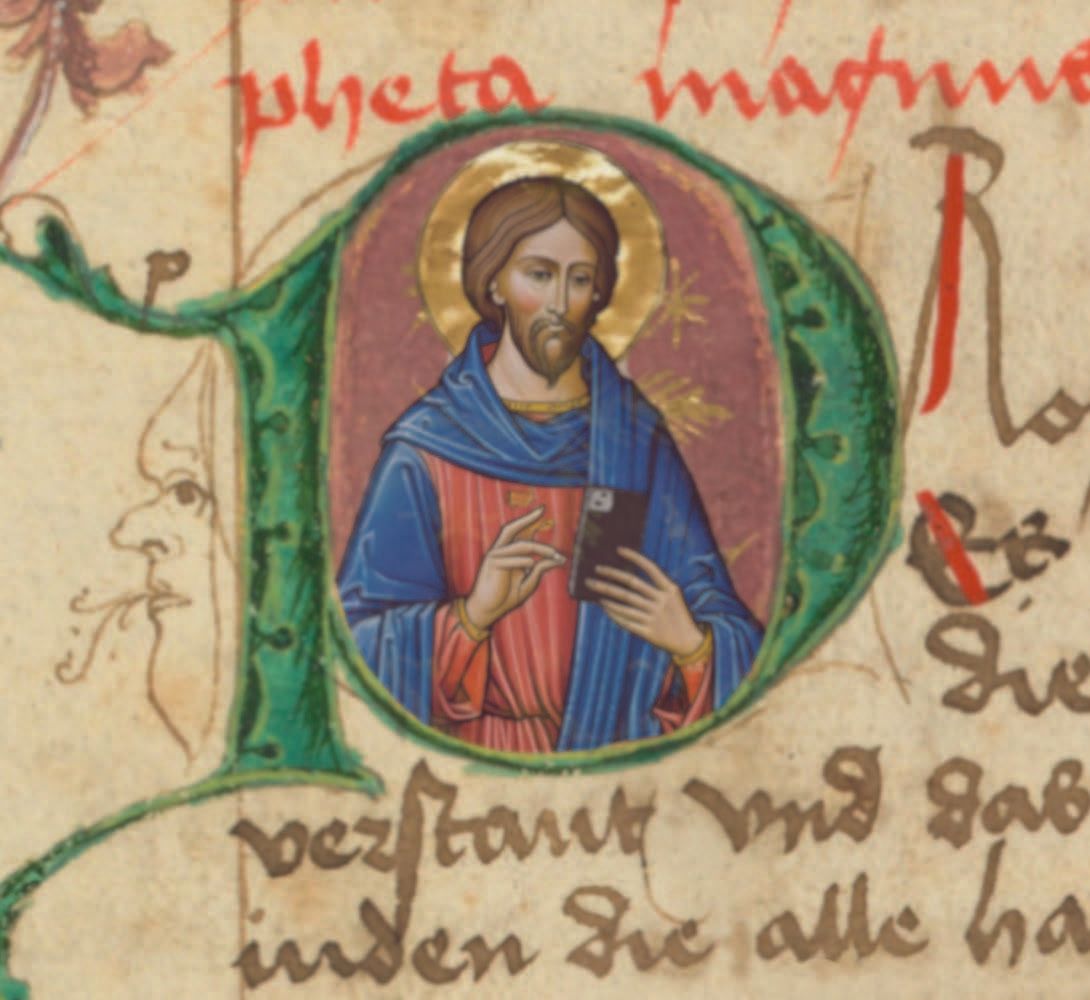 pheta magnus
p
P Ro
die
verstant vnd das
iuden die alle ha